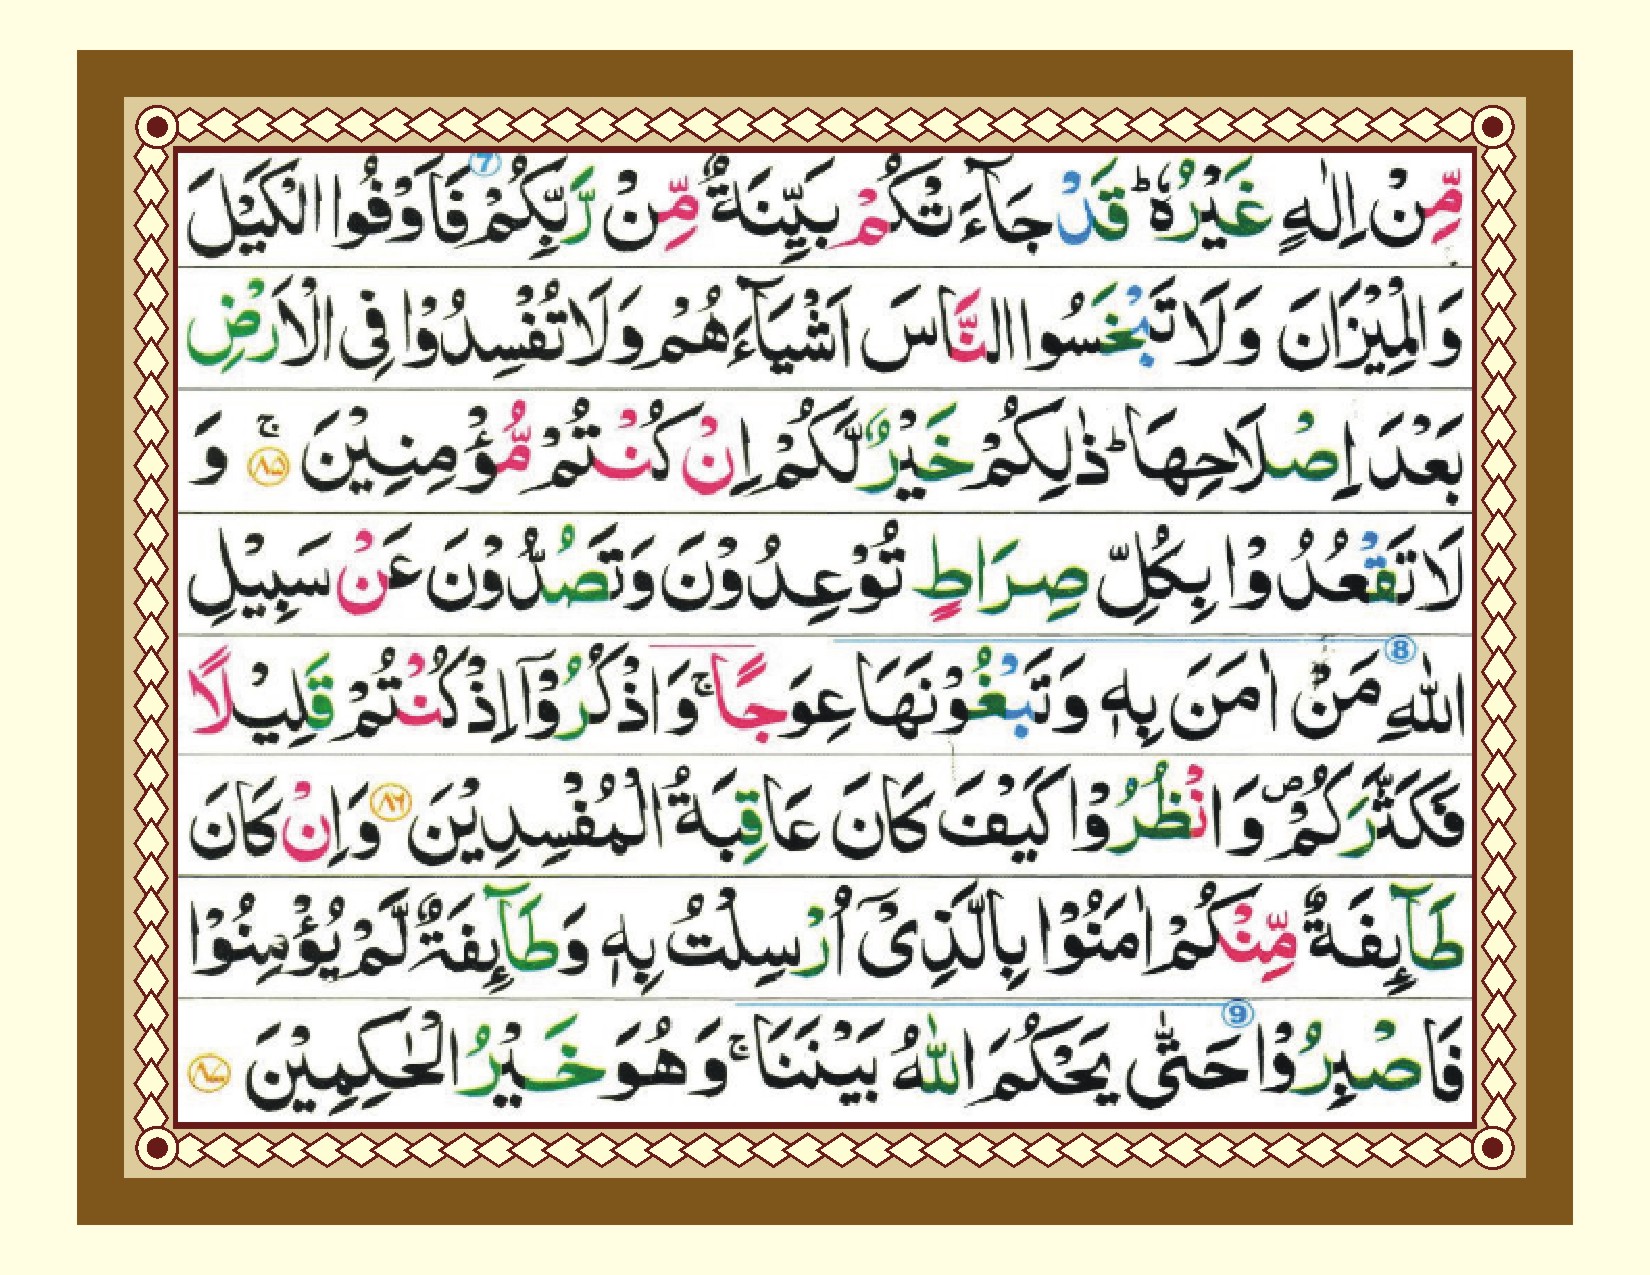 مِّنْ اِلٰهٍ غَيْرُهٗ ؕ قَدْ جَآءَتْكُمْ بَيِّنَةٌ مِّنْ رَّبِّكُمْ 7 فَاَوْفُوا الْكَيْلَ
وَالْمِيْزَانَ وَلَا تَبْخَسُوا النَّاسَ اَشْيَآءَهُمْ وَلَا تُفْسِدُوْا فِى الْاَرْضِ
بَعْدَ اِصْلَاحِهَا ؕ ذٰلِكُمْ خَيْرٌ لَّكُمْ اِنْ كُنْتُمْ مُّؤْمِنِيْنَ ۚ ٨٥ وَ
لَا تَقْعُدُوْا بِكُلِّ صِرَاطٍ تُوْعِدُوْنَ وَتَصُدُّوْنَ عَنْ سَبِيْلِ
اللهِ 8 مَنْ اٰمَنَ بِهٖ وَتَبْغُوْنَهَا عِوَجًا ۚ وَاذْكُرُوْۤا اِذْ كُنْتُمْ قَلِيْلًا
فَكَثَّرَكُمْ ۪ وَانْظُرُوْا كَيْفَ كَانَ عَاقِبَةُ الْمُفْسِدِيْنَ ٨٦ وَاِنْ كَانَ
طَآئِفَةٌ مِّنْكُمْ اٰمَنُوْا بِالَّذِىْۤ اُرْسِلْتُ بِهٖ وَطَآئِفَةٌ لَّمْ يُؤْمِنُوْا
فَاصْبِرُوْا 9 حَتّٰى يَحْكُمَ اللهُ بَيْنَنَا ۚ وَهُوَ خَيْرُ الْحٰكِمِيْنَ ٨٧